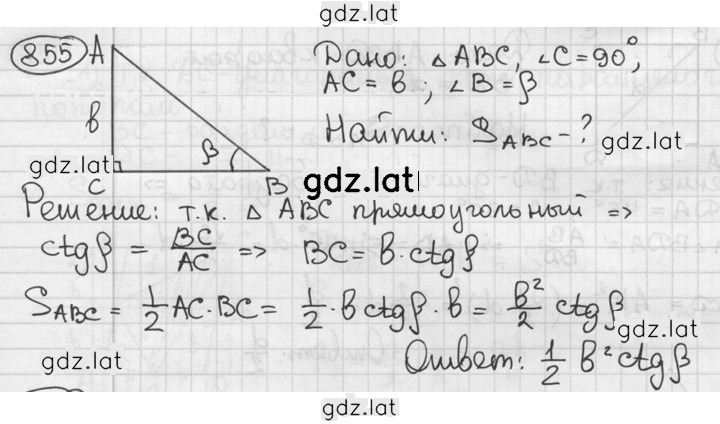 gdz.lat
855 A Дано: △ ABC, ∠C=90°,
AC = в ; ∠B = β
в
Найти: S_ABC - ?
β
gdz.lat
gdz.lat
C B
gdz.lat
Решение: т.к. △ ABC прямоугольный =>
ctg β = BC/AC => BC = в · ctg β
S_ABC = 1/2 AC · BC = 1/2 · в ctg β · в = в²/2 ctg β
gdz.lat
gdz.lat
Ответ: 1/2 в² ctg β
gdz.lat